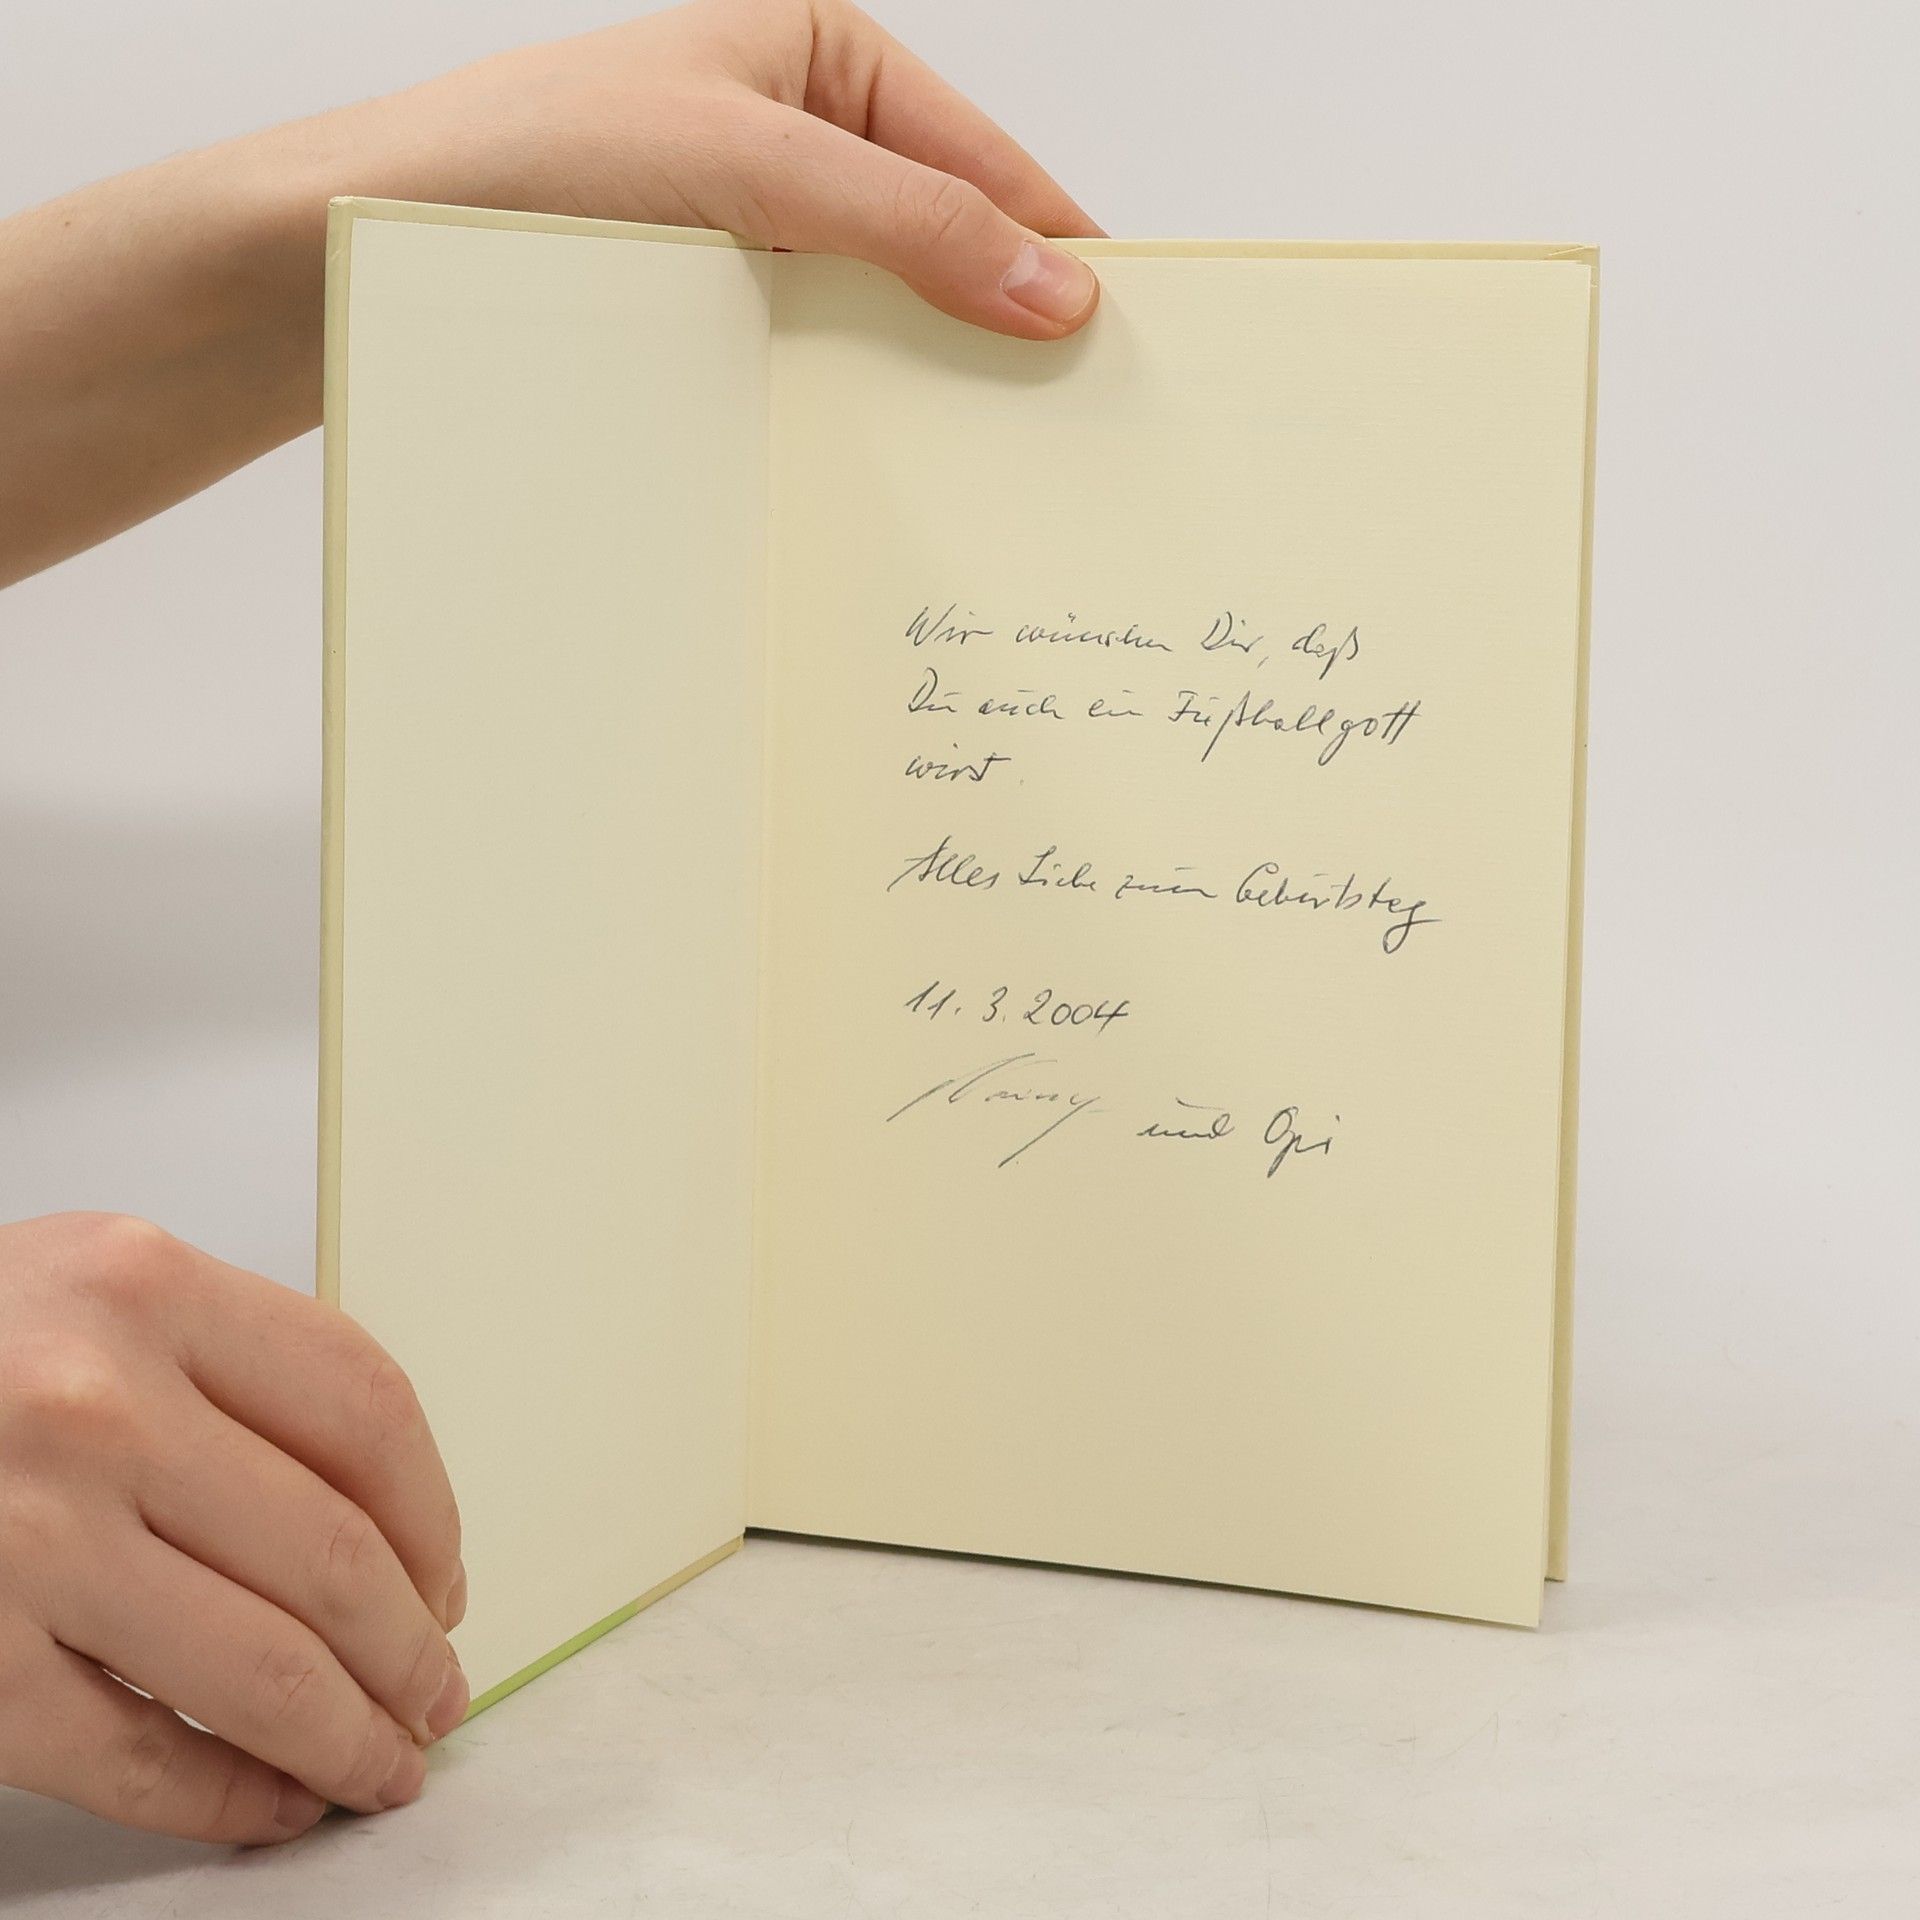 Wir wünschen Dir, daß
Du auch ein Fußballgott
wirst.
Alles Liebe zum Geburtstag
11.3.2004
und Opi